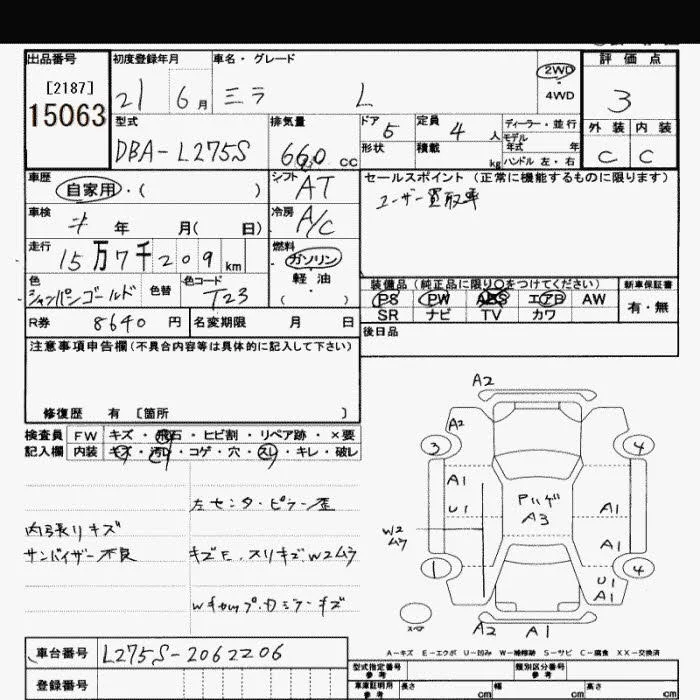 出品番号 初度登録年月 車名・グレード 評価点
[2187] 2WD
15063 21 6月 ミラ L 4WD 3
型式 排気量 ドア 5 定員 4人 ディーラー・並行 外装 内装
DBA-L275S 660cc 形状 積載 kg モデル年式 年 C C
ハンドル 左・右
車歴 自家用・( ) シフト AT セールスポイント(正常に機能するものに限ります)
ユーザー買取車
車検 年 月( 日) 冷房 A/C
走行 15万7千209km 燃料 ガソリン
軽油
( )
装備品(純正品に限り○をつけてください) 新車保証書
色 シャンパンゴールド 色替 色コード T23 PS PW ABS エアB AW 有・無
SR ナビ TV カワ
R券 8640円 名変期限 月 日 後日品
注意事項申告欄(不具合内容等は具体的に記入して下さい)
修復歴 有 [箇所 ]
検査員 FW キズ・飛石・ヒビ割・リペア跡・×要
記入欄 内装 キズ・汚レ・コゲ・穴・スレ・キレ・破レ
左センターピラー歪
内張りキズ
サンバイザー不良 キズE、スリキズ、W2ムラ
Wキャップ・カラーキズ
A2
A2
3 4
A1 Pハゲ
U1 A3 A1
W2
ムラ A1
1 4
U1
A1
スペア A2 A1
A-キズ E-エクボ U-凹み W-補修跡 S-サビ C-腐食 XX-交換済
車台番号 L275S-2062206
型式指定番号 参考 類別区分番号 参考
登録番号 車庫証明用 参考 長さ cm 幅 cm 高さ cm